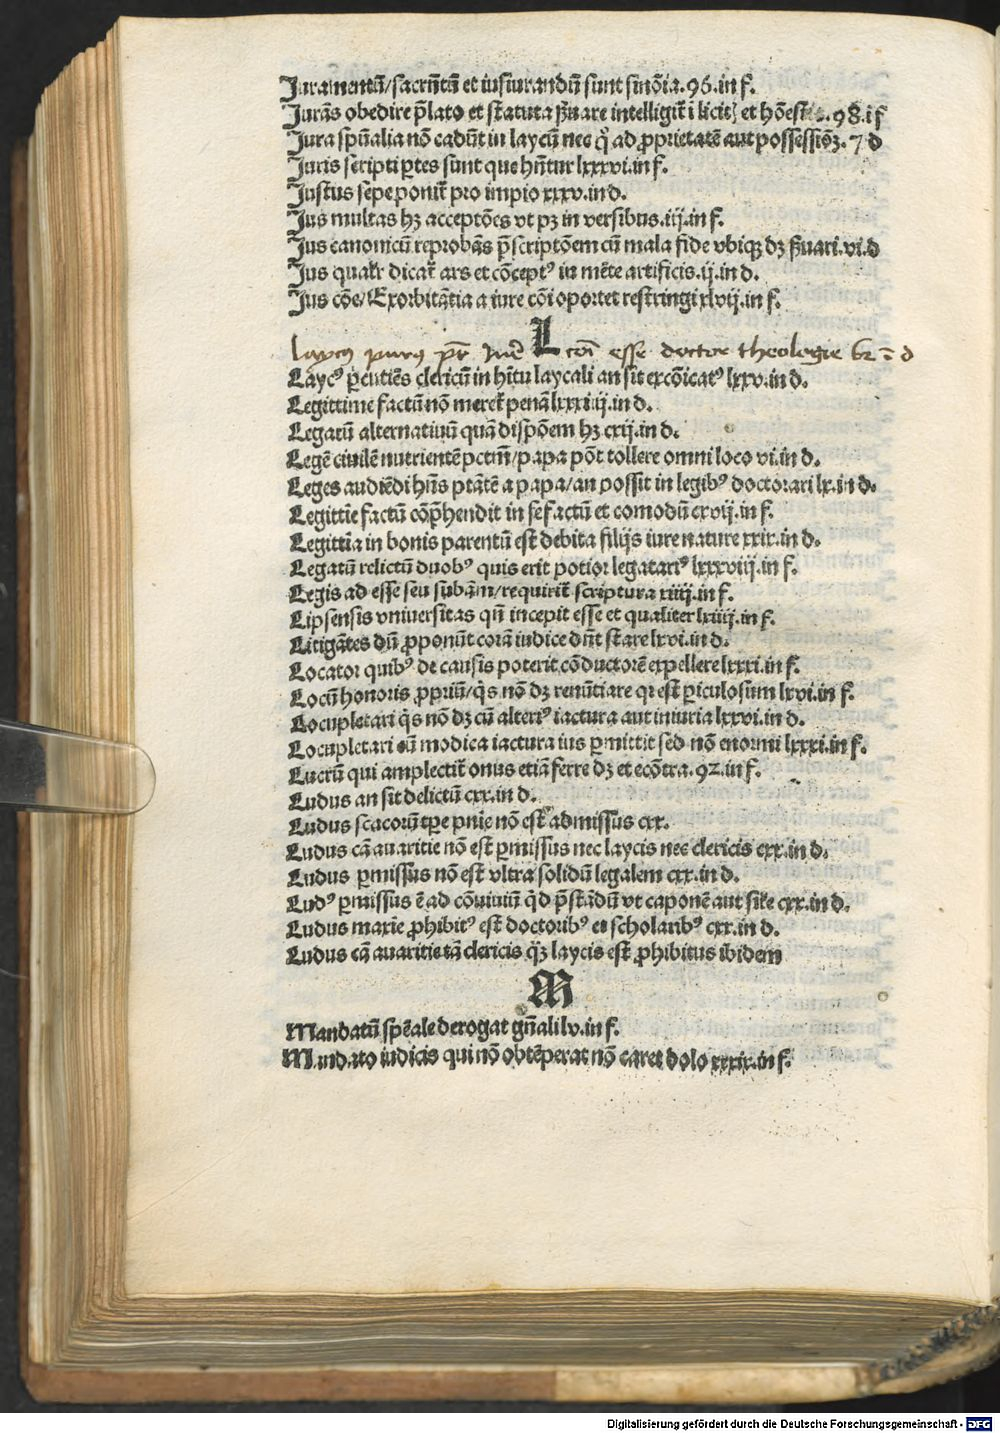 Juramentū/sacrn̄tū et iusiurandū sunt sinōia.96.in f.
Jurās obedire p̄lato et statuta ẜuare intelligit̄ i licit⁊ et hōest⁊.98.i f
Jura spūalia nō cadūt in laycū nec q̊ ad ꝓprietatē aut possessiōꝫ.7 d
Juris scripti ꝑtes sunt que hn̄tur lxxxvi.in f.
Justus sepe ponit̄ pro impio xxxv.in d.
Jus multas hꝫ acceptōes vt pꝫ in versibus.iij.in f.
Jus canonicū reprobās p̄scriptōem cū mala fide vbiqꝫ dꝫ ẜuari.vi.d
Jus qualr̄ dicat̄ ars et cōceptꝰ in mēte artificis.ij.in d.
Jus cōe/Exorbitātia a iure cōi oportet restringi xlvij.in f.
L
laycꝰ purꝰ pt̄ Iure coi esse doctor theologie 62 ī d
Laycꝰ ꝑcutiēs clericū in hītu laycali an sit excōicatꝰ lxxv.in d.
Legittime factū nō meret̄ penā lxxxiiij.in d.
Legatū alternatiuū quā dispōem hꝫ cxij.in d.
Legē ciuilē nutrientē pctm̄/papa pōt tollere omni loco vi.in d.
Leges audiēdi hn̄s ptātē a papa/an possit in legibꝰ doctorari lx.in d.
Legittie factū cōp̄hendit in se factū et comodū cxvij.in f.
Legittia in bonis parentū est debita filijs iure nature xxix.in d.
Legatū relictū duobꝰ quis erit potior legatariꝰ lxxxviij.in f.
Legis ad esse seu subām/requirit̄ scriptura xiiij.in f.
Lipsensis vniuersitas qn̄ incepit esse et qualiter lxiiij.in f.
Litigātes dū ꝓponūt corā iudice dn̄t stare lxvi.in d.
Locator quibꝰ de causis poterit cōductorē expellere lxxxi.in f.
Locū honoris ꝓpriū/q̇s nō dꝫ renūtiare qr est ꝑiculosum lxvi.in f.
Locupletari q̇s nō dꝫ cū alteriꝰ iactura aut iniuria lxxvi.in d.
Locupletari cū modica iactura ius ꝑmittit sed nō enormi lxxxi.in f.
Lucrū qui amplectit̄ onus etiā ferre dꝫ et ecōtra.92.in f.
Ludus an sit delictū cxx.in d.
Ludus scacorū tꝑe pnīe nō est admissus cxx.
Ludus cā auaritie nō est ꝑmissus nec laycis nec clericis cxx.in d.
Ludus ꝑmissus nō est vltra solidū legalem cxx.in d.
Ludꝰ ꝑmissus ē ad cōuiuiū q̇d p̄stādū vt caponē aut sile cxx.in d.
Ludus maxie ꝓhibitꝰ est doctoribꝰ et scholaribꝰ cxx.in d.
Ludus cā auaritie tā clericis q̄ꝫ laycis est ꝓhibitus ibidem
M
Mandatū spēale derogat gn̄ali lv.in f.
Mandato iudicis qui nō obtēperat nō caret dolo xxxix.in f.
Digitalisierung gefördert durch die Deutsche Forschungsgemeinschaft - DFG